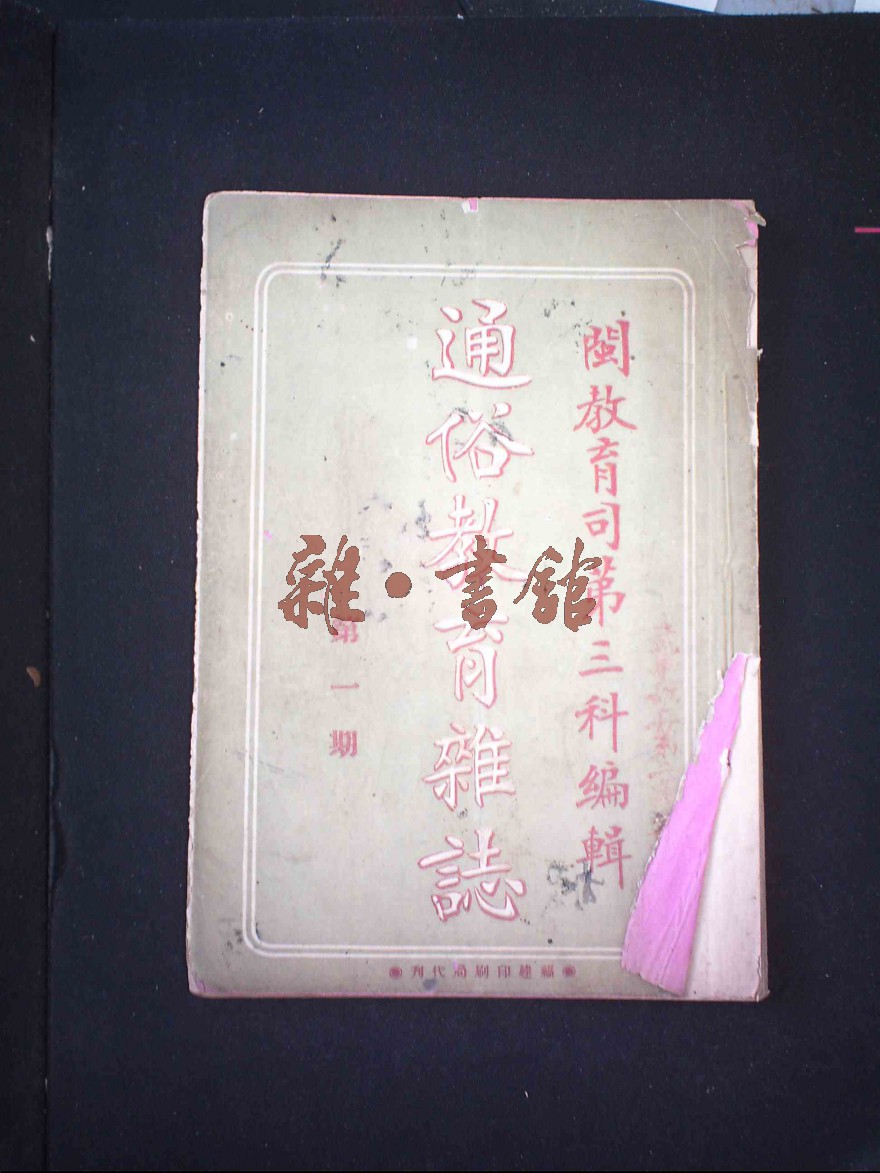 閩教育司第三科編輯
通俗教育雜誌
第一期
福建印刷局代刋
雜·書館